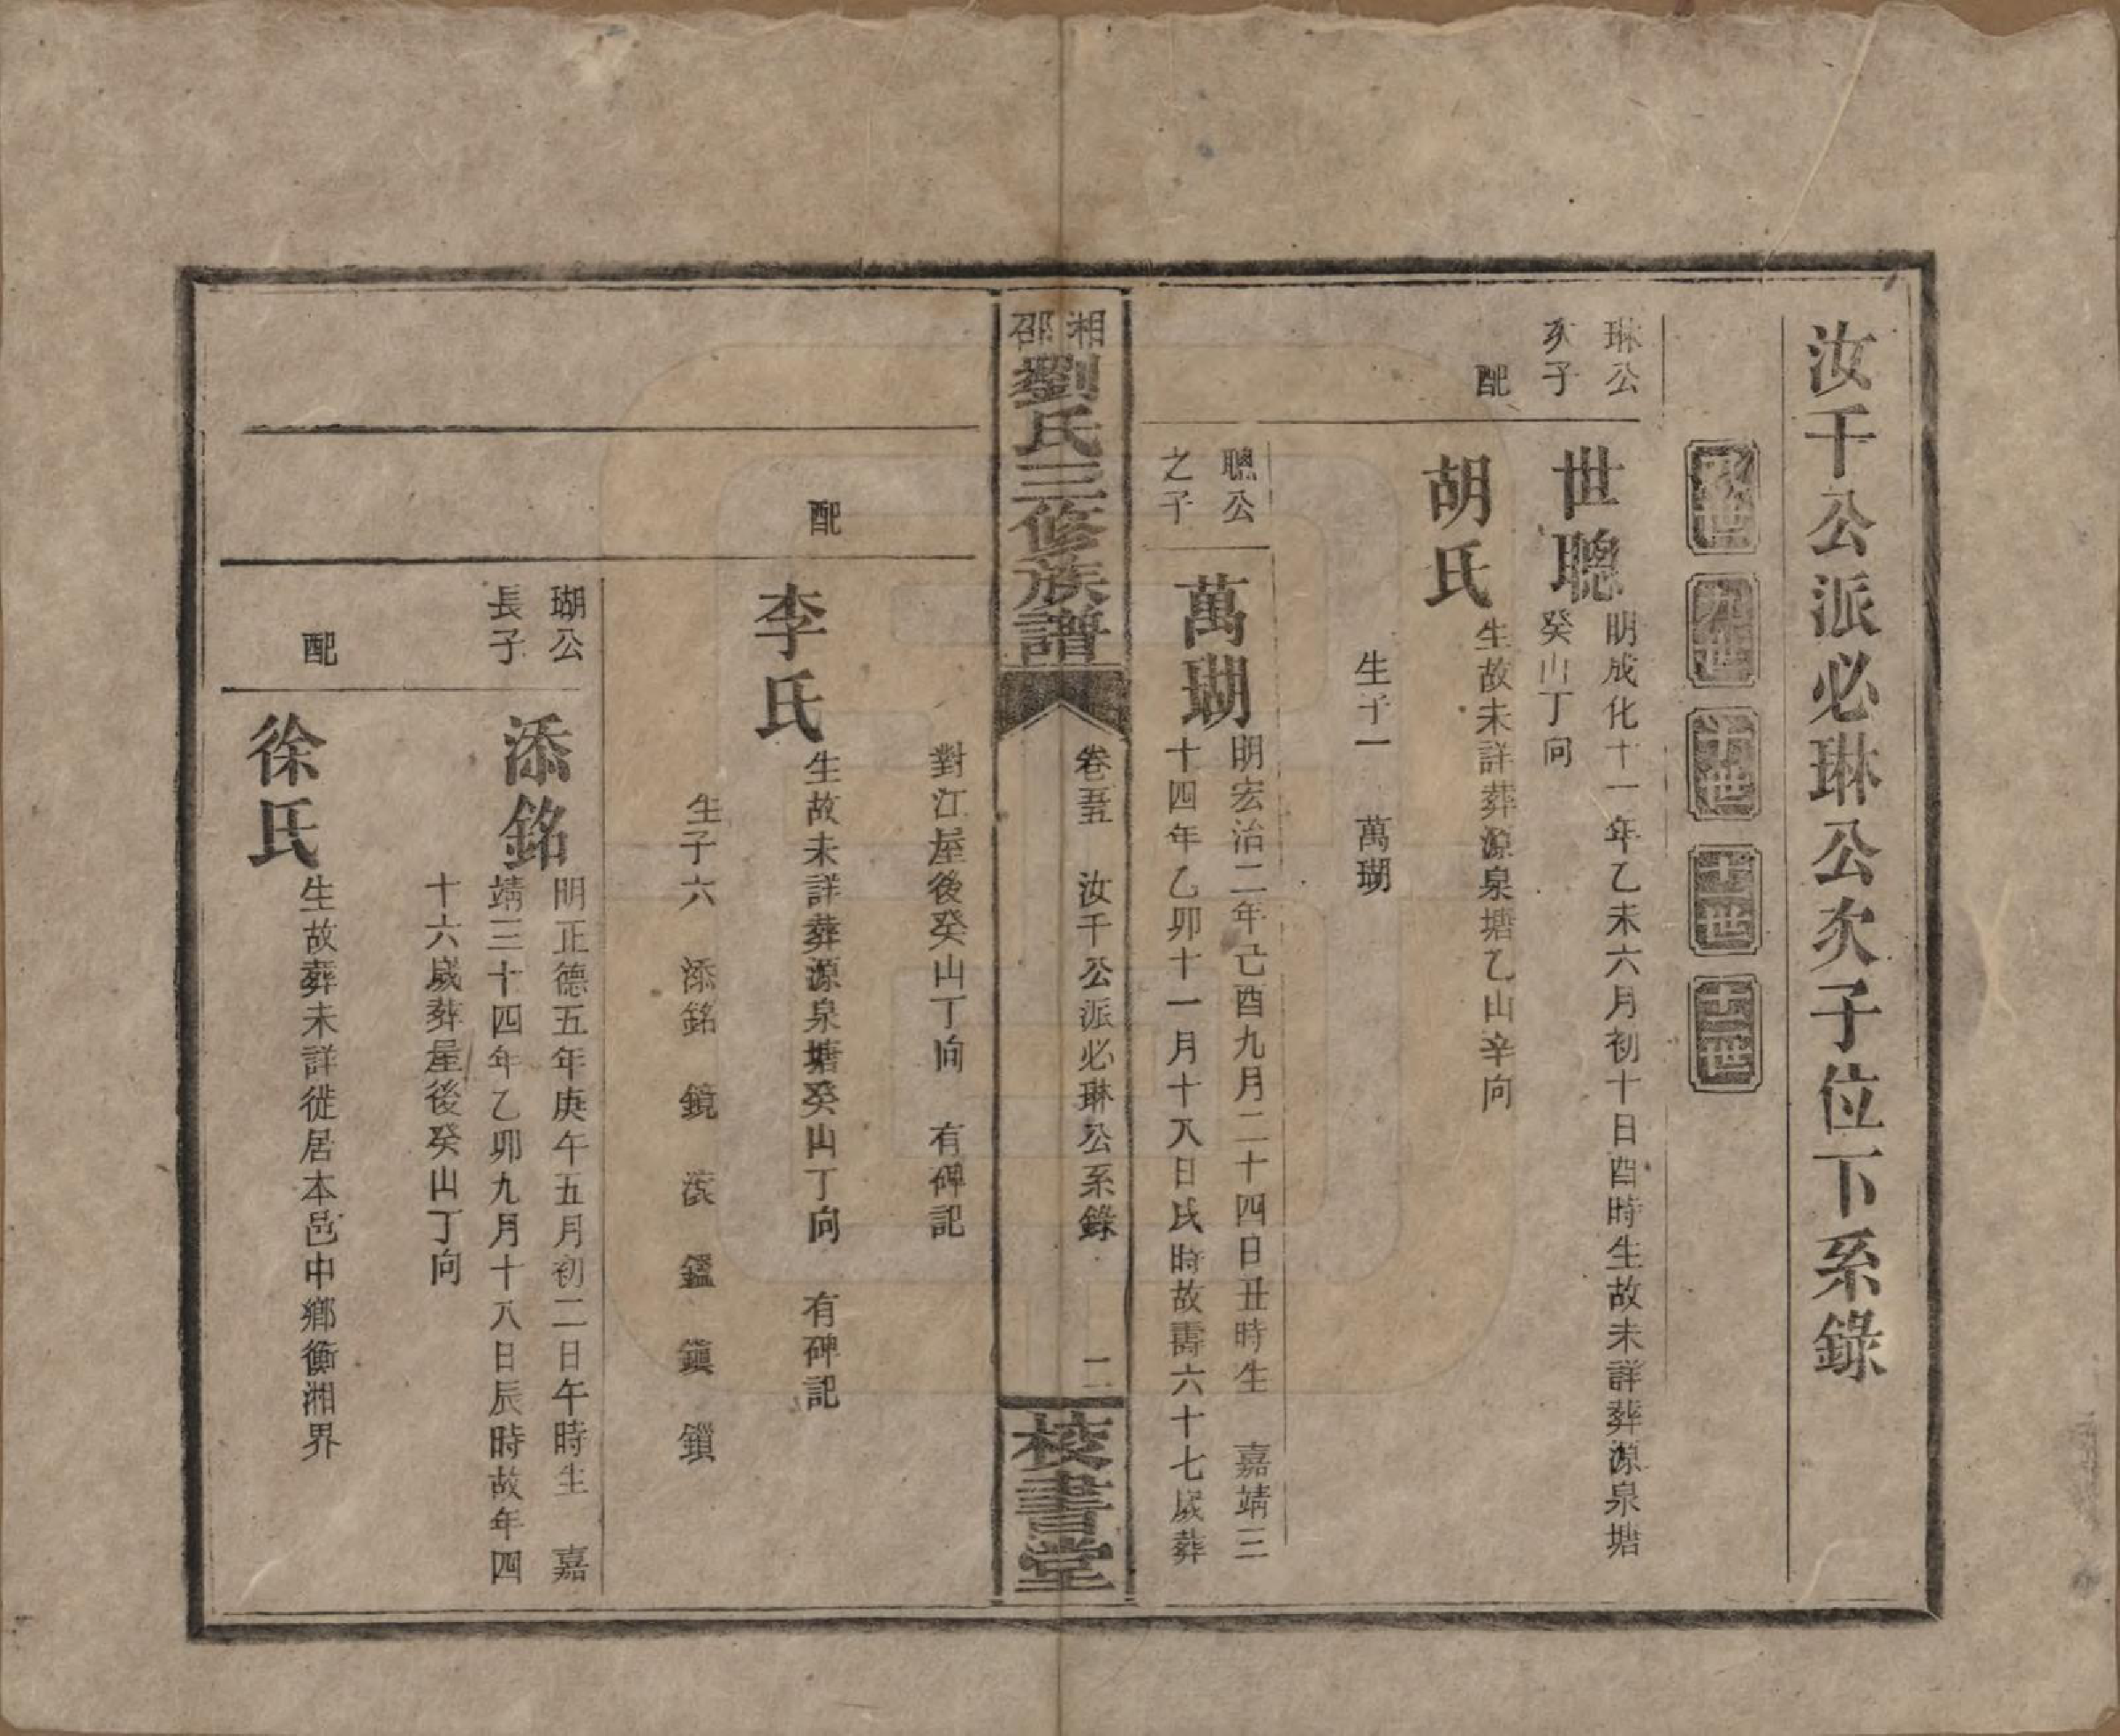 汝千公派必琳公次子位下系錄
八世
九世
十世
十一世
十二世
琳公
次子
世聰
明成化十一年乙未六月初十日酉時生故未詳葬源泉塘
癸山丁向
配
胡氏
生故未詳葬源泉塘乙山辛向
生子一 萬瑚
聰公
之子
萬瑚
明宏治二年己酉九月二十四日丑時生 嘉靖三
十四年乙卯十一月十八日辰時故壽六十七歲葬
湘邵
劉氏三修族譜
卷五 汝千公派必琳公系錄 二
校書堂
對江屋後癸山丁向 有碑記
配
李氏
生故未詳葬源泉塘癸山丁向 有碑記
生子六 添銘 鏡 滾 鑑 鎮 鎖
瑚公
長子
添銘
明正德五年庚午五月初二日午時生 嘉
靖三十四年乙卯九月十八日辰時故年四
十六歲葬屋後癸山丁向
配
徐氏
生故葬未詳徙居本邑中鄉衡湘界